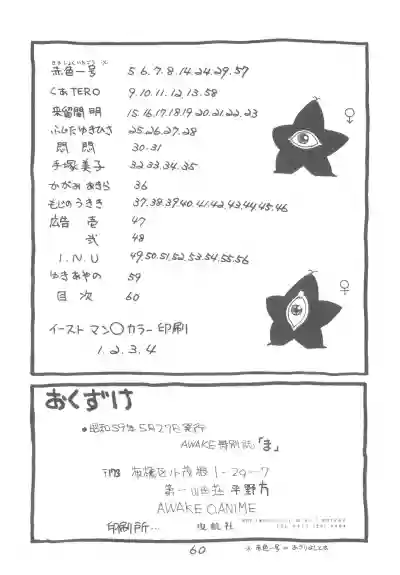 赤色一号 5 6.7.8.14.24.29.57
くあTERO 9.10.11.12.13.58
来留間 明 15.16.17.18.19.20.21.22.23
ふじたゆきひさ 25.26.27.28
悶 悶 30.31
手塚美子 32.33.34.35
かがみあきら 36
もじのうきき 37.38.39.40.41.42.43.44.45.46
広告 壱 47
弐 48
I.N.U 49.50.51.52.53.54.55.56
ゆきあやの 59
目次 60
♂
♀
イースト マン○カラー 印刷
1.2.3.4
おくずけ
●昭和59年5月27日発行
AWAKE特別誌「ま」
〒173 板橋区小茂根1-29-7
第一山 荘 平野方
AWAKE O.ANIME
印刷所…
60
赤色一号